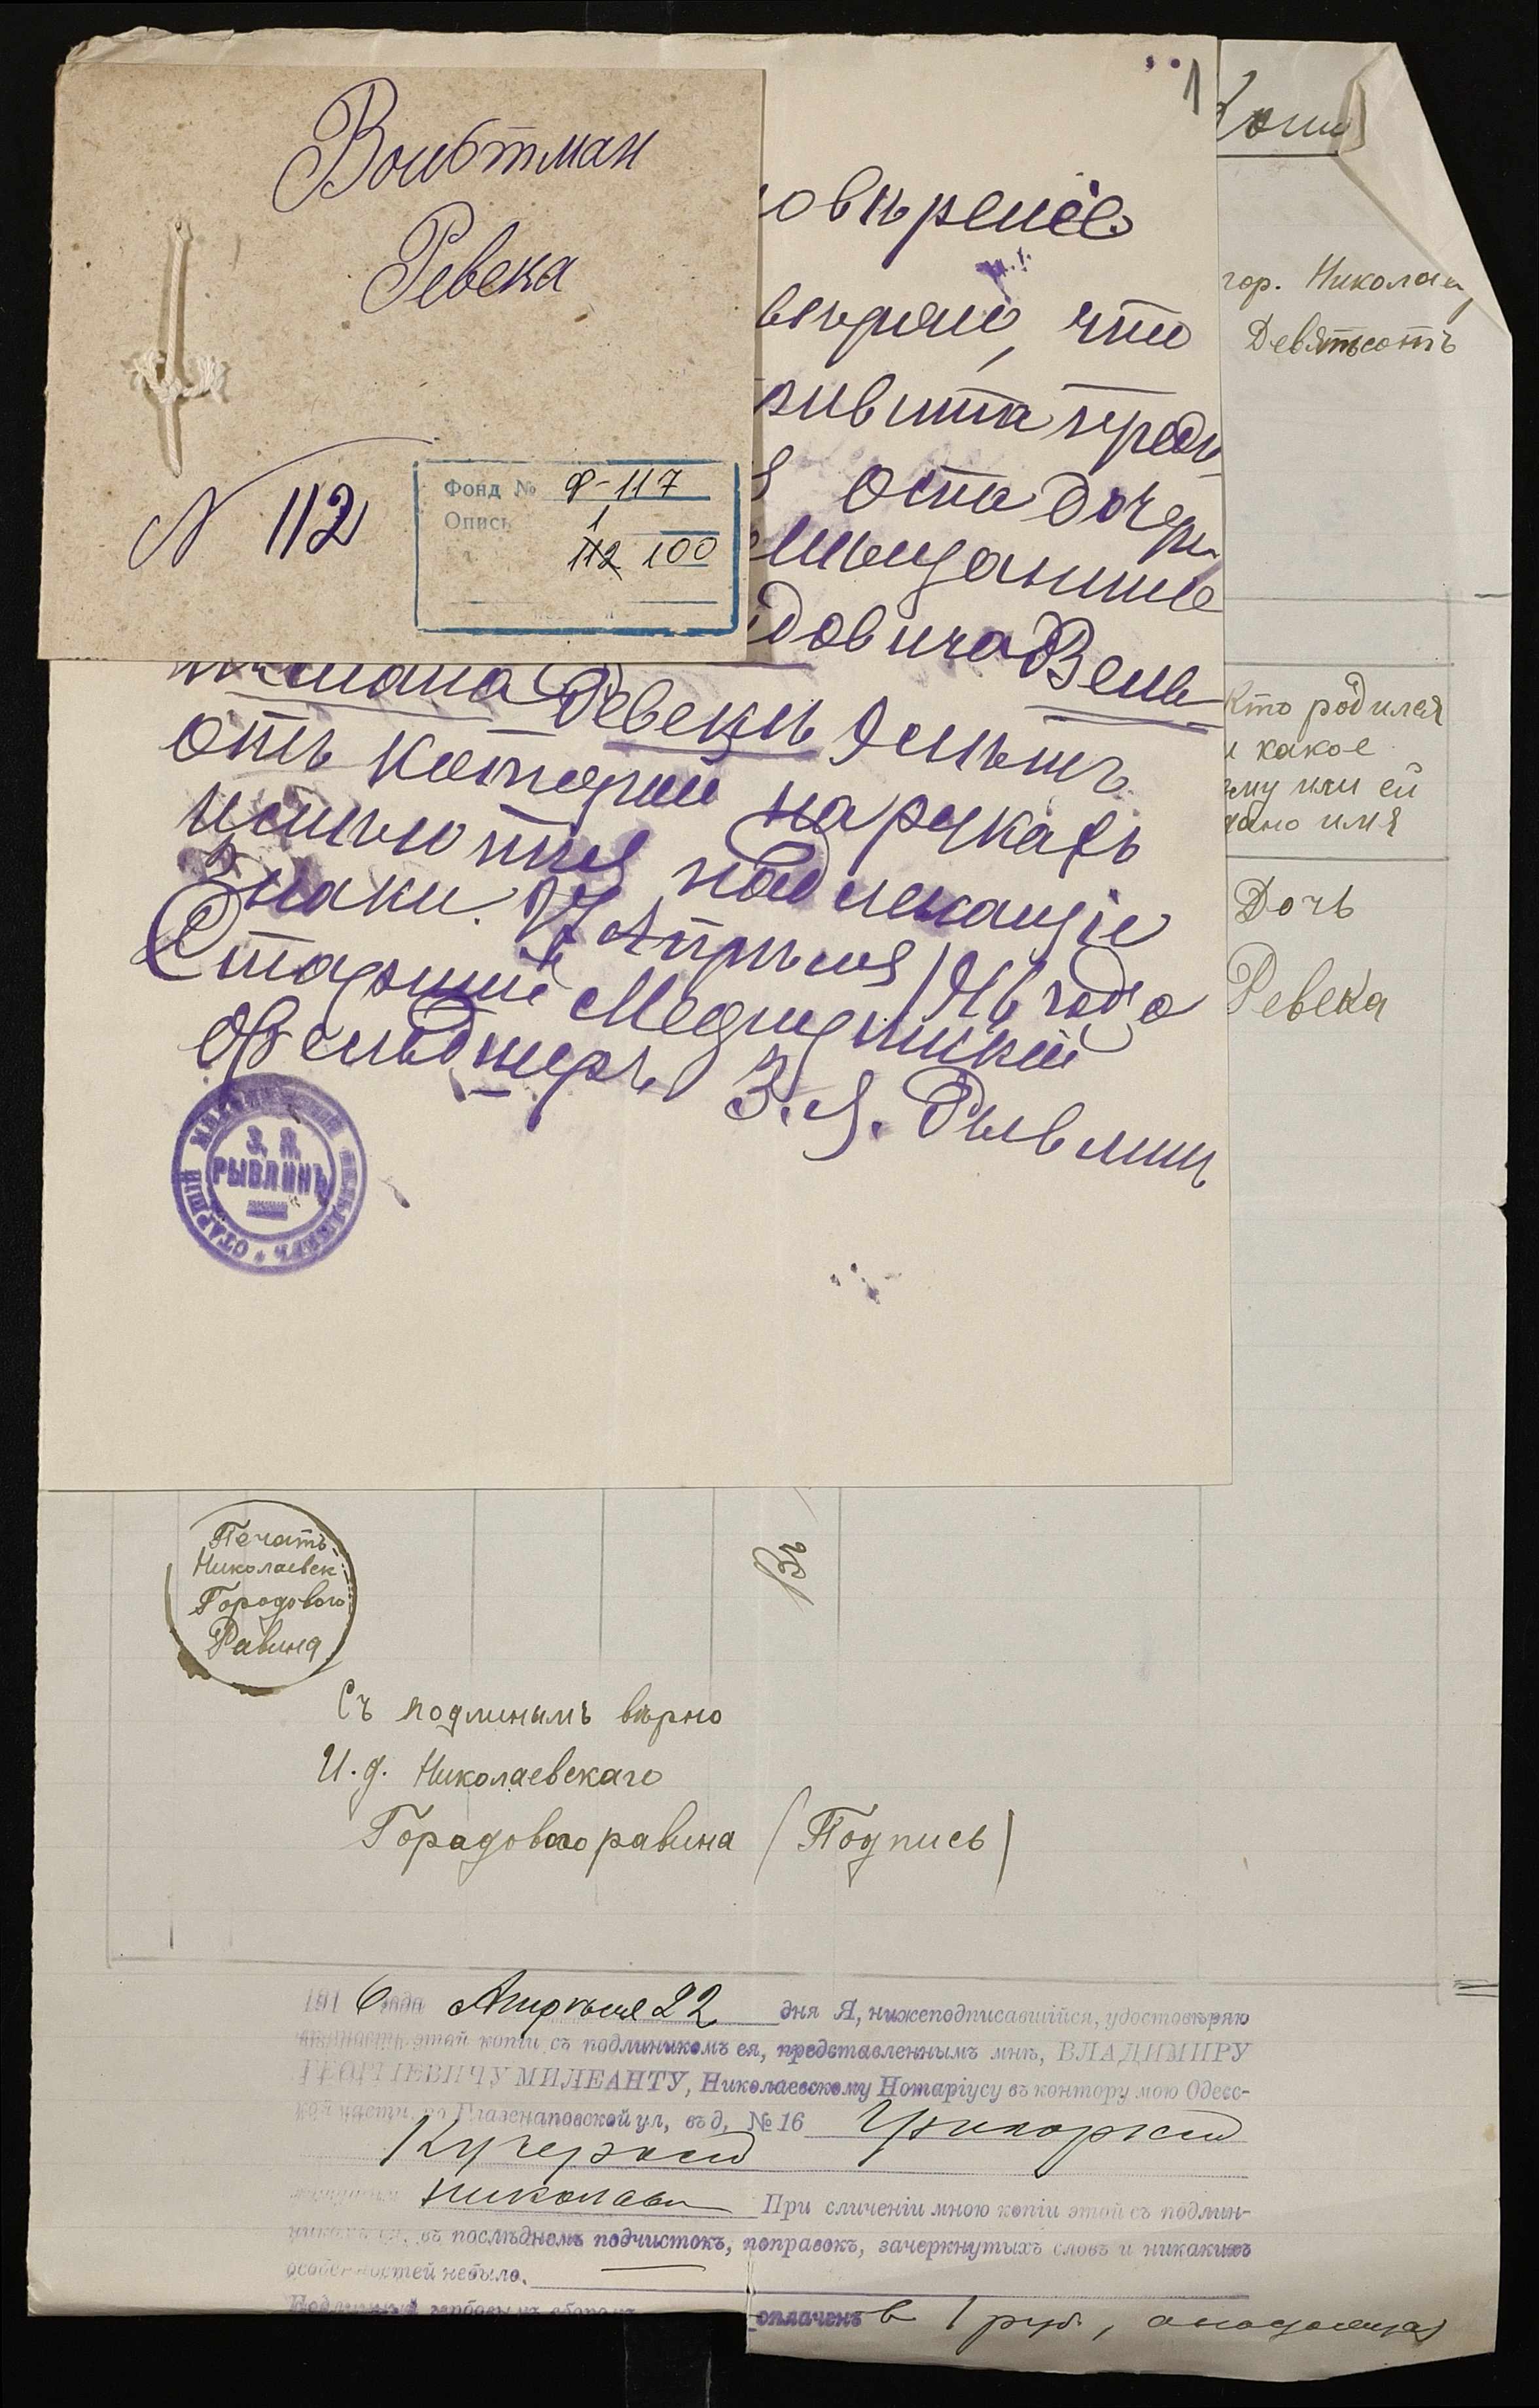 Войтман
Ревека
N 112
Фонд № Ф-117
Опись 1
112 100
1
овѣреніе
м.п.
вѣряю, что
привита пред
оспа дочери
мѣщанина
довича Вель
тмана Ревекѣ 9 лѣтъ
отъ которой на рукахъ
имѣются надлежащіе
знаки. 17 Апрѣля 1916 года
Старшій Медицинскій
Фельдшеръ З. Я. Рывлинъ
СТАРШІЙ МЕДИЦИНСКІЙ ФЕЛЬДШЕРЪ
З. Я.
РЫВЛИНЪ
Копия
гор. Николаев
Девятьсотъ
Кто родился
и какое
ему или ей
дано имя
Дочь
Ревека
Печать
Николаевск
Городового
Равина
Въ
Съ подлинымъ вѣрно
И. д. Николаевскаго
Городового равина (Подпись)
1916 года Апрѣля 22 дня Я, нижеподписавшійся, удостовѣряю
вѣрность этой копіи съ подлинникомъ ея, представленнымъ мнѣ, ВЛАДИМИРУ
ГЕОРГІЕВИЧУ МИЛЕАНТУ, Николаевскому Нотаріусу въ контору мою Одесс-
кой части, по Глазенаповской ул, въ д, № 16 Григоріемъ
Кучерскимъ
Николаевѣ При сличеніи мною копіи этой съ подлин-
никомъ ея, въ послѣднемъ подчистокъ, поправокъ, зачеркнутыхъ словъ и никакихъ
особенностей небыло.
Подлинный гербовымъ сборомъ оплаченъ в 1 руб.,